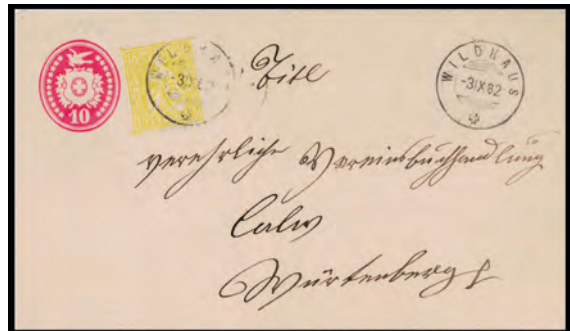 10
15
WILDHAUS
-3 IX 82
WILDHAUS
-3 IX 82
Titl
verehrliche Vereinsbuchhandlung
Calw
Würtenberg